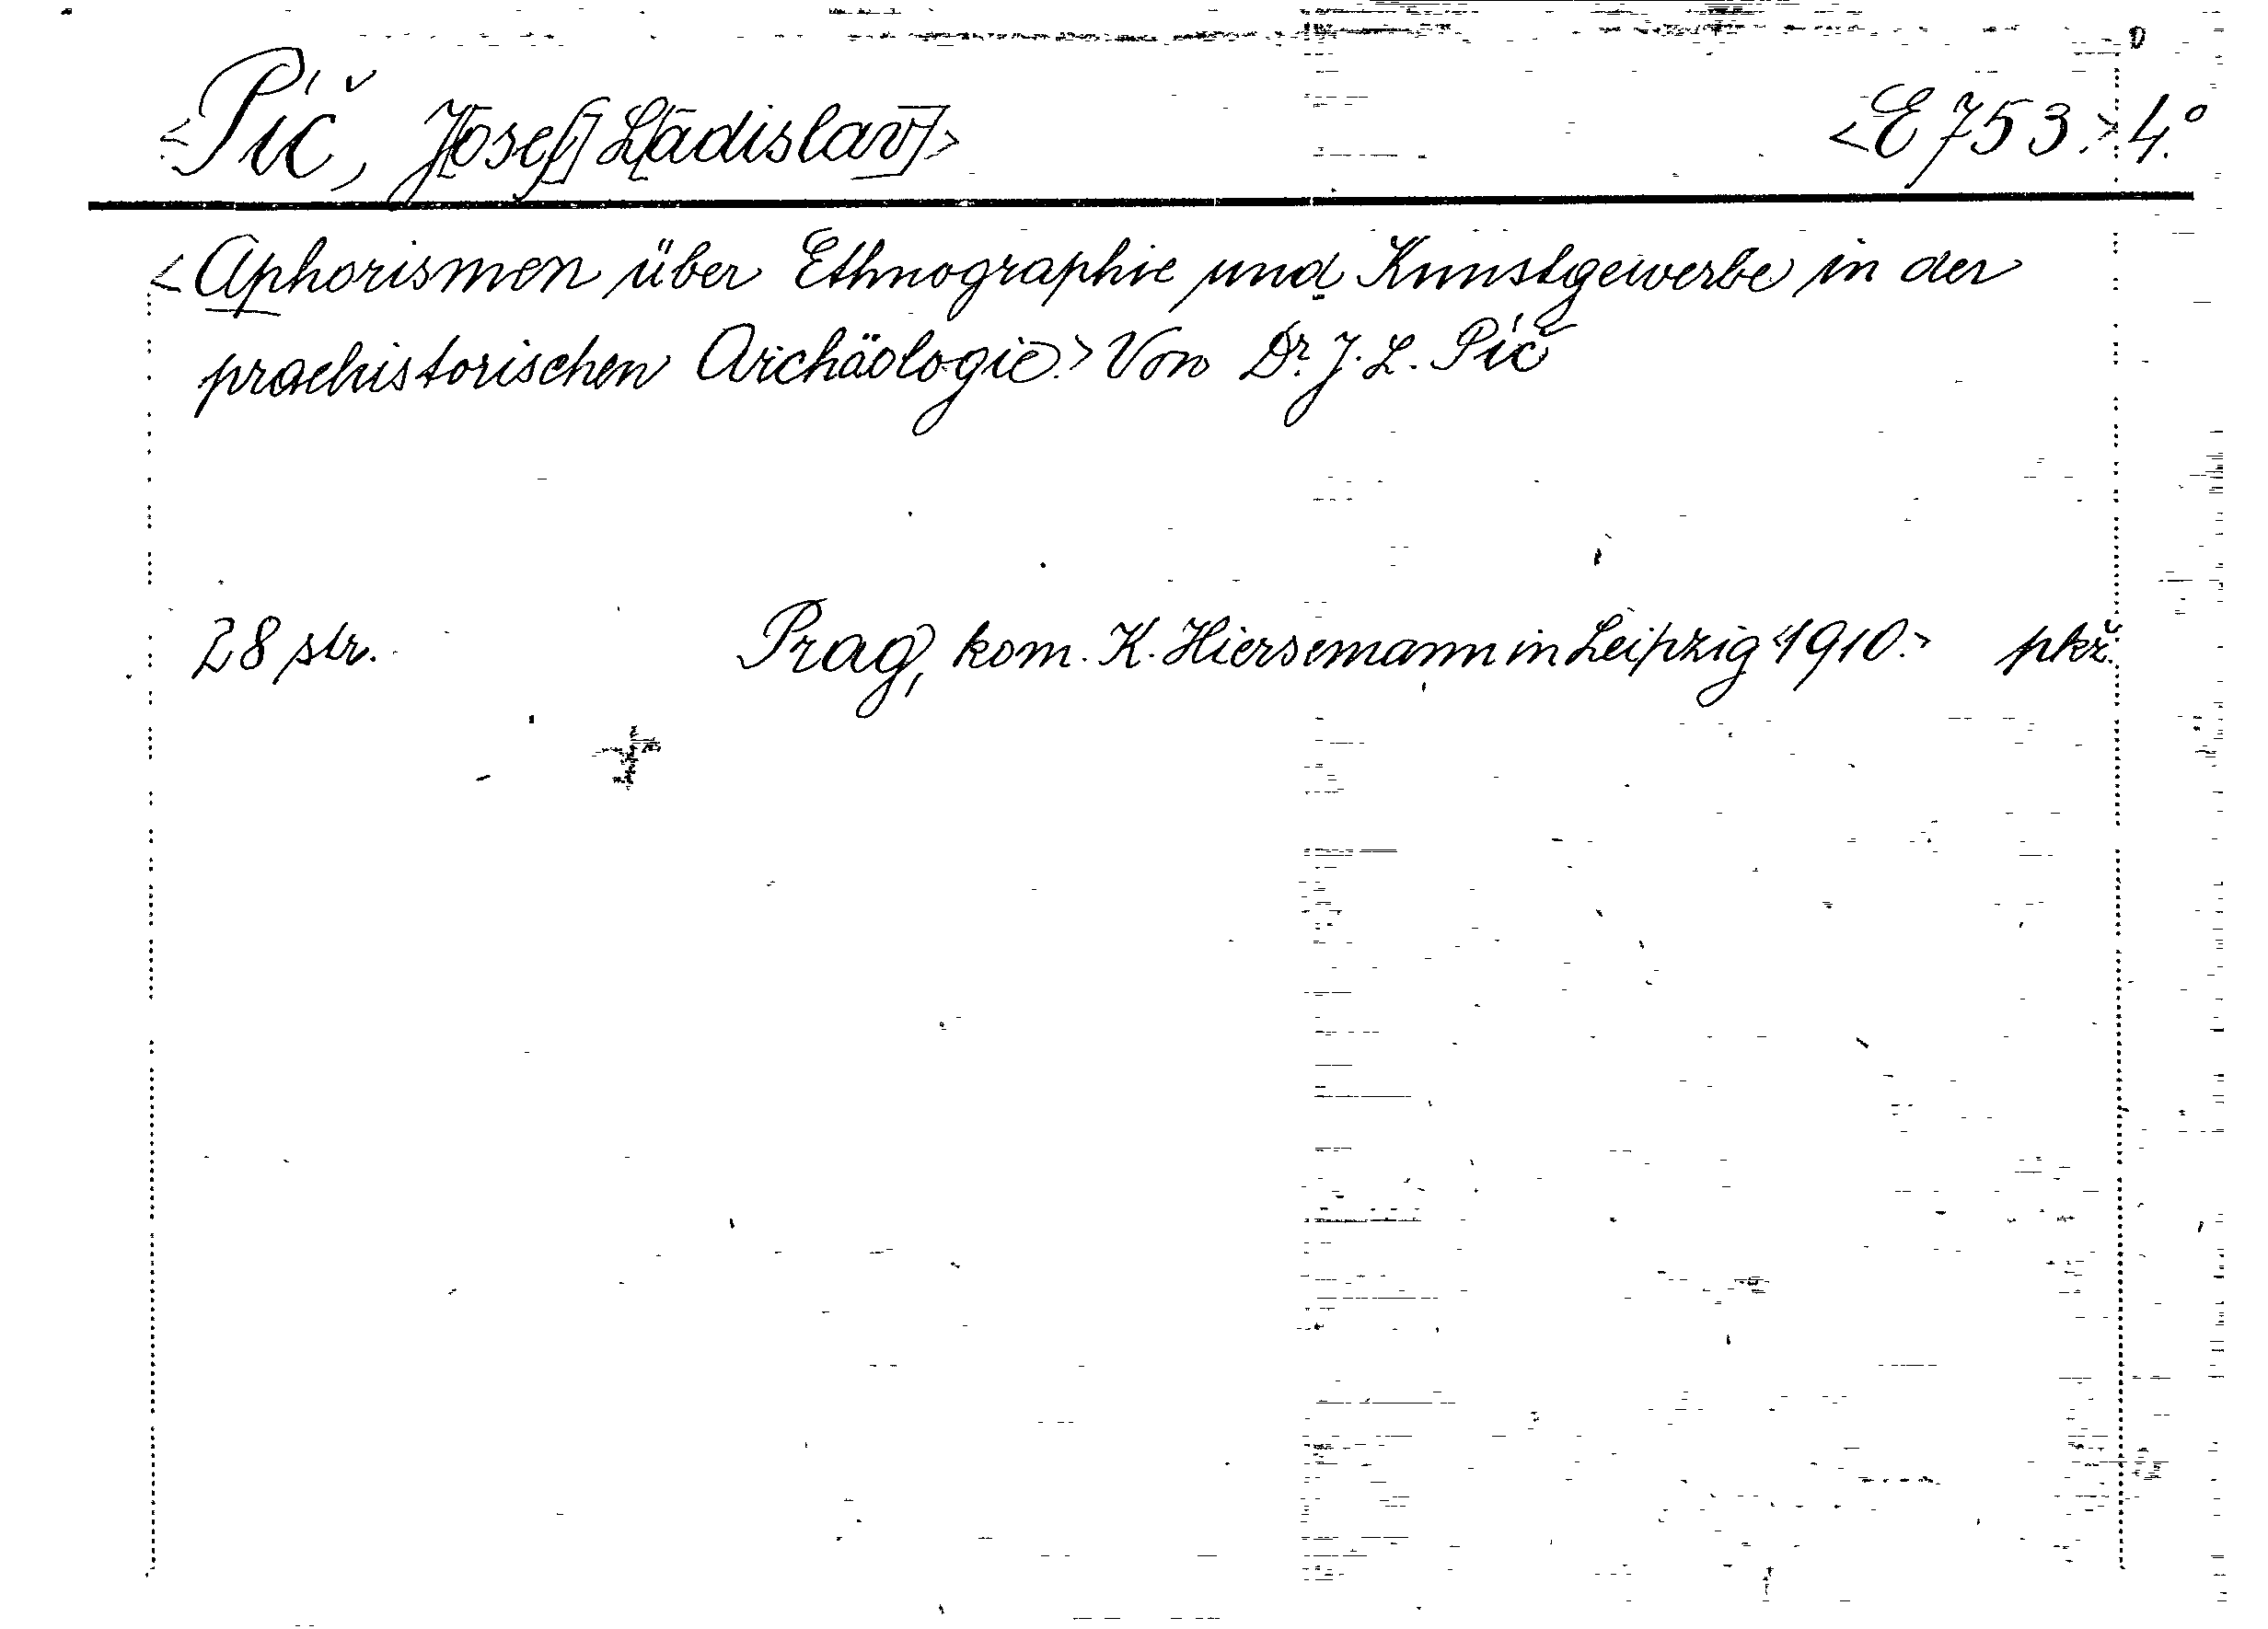 <Píč, J[osef] L[adislav]> <E 753.> 4.°
<Aphorismen über Ethnographie und Kunstgewerbe in der
praehistorischen Archäologie.> Von Dr. J. L. Píč
28 str. Prag, kom. K. Hiersemann in Leipzig <1910.> pkř.